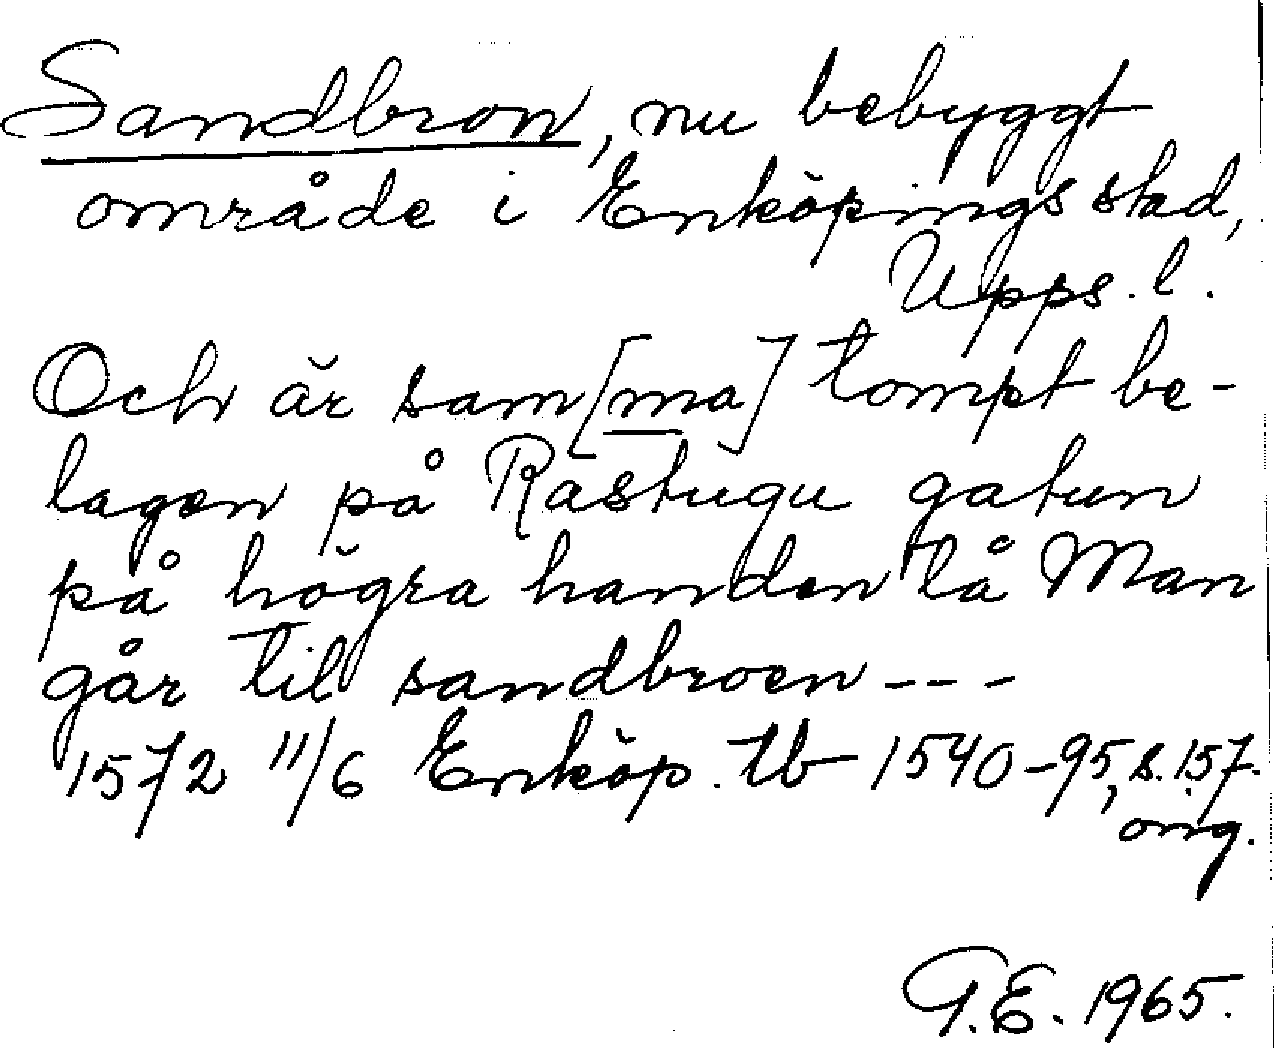 Sandbron, nu bebyggt
område i Enköpings stad,
Upps. l.
Och är sam[ma] tompt be-
lagen på Råstugu gatun
på högra handen tå Man
går til sandbroen ---
1572 11/6 Enköp. tb 1540-95, s. 157.
orig.
G.E. 1965.